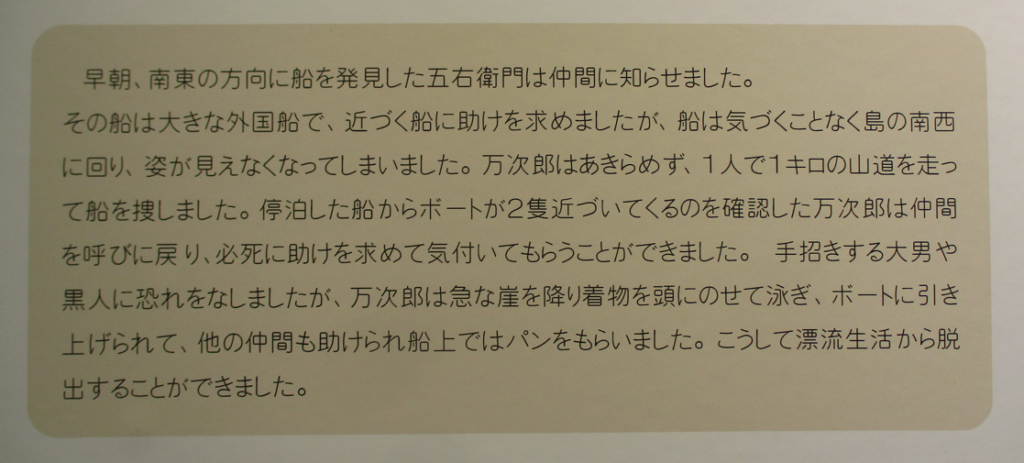 早朝、南東の方向に船を発見した五右衛門は仲間に知らせました。
その船は大きな外国船で、近づく船に助けを求めましたが、船は気づくことなく島の南西
に回り、姿が見えなくなってしまいました。万次郎はあきらめず、1人で1キロの山道を走っ
て船を捜しました。停泊した船からボートが2隻近づいてくるのを確認した万次郎は仲間
を呼びに戻り、必死に助けを求めて気付いてもらうことができました。　手招きする大男や
黒人に恐れをなしましたが、万次郎は急な崖を降り着物を頭にのせて泳ぎ、ボートに引き
上げられて、他の仲間も助けられ船上ではパンをもらいました。こうして漂流生活から脱
出することができました。